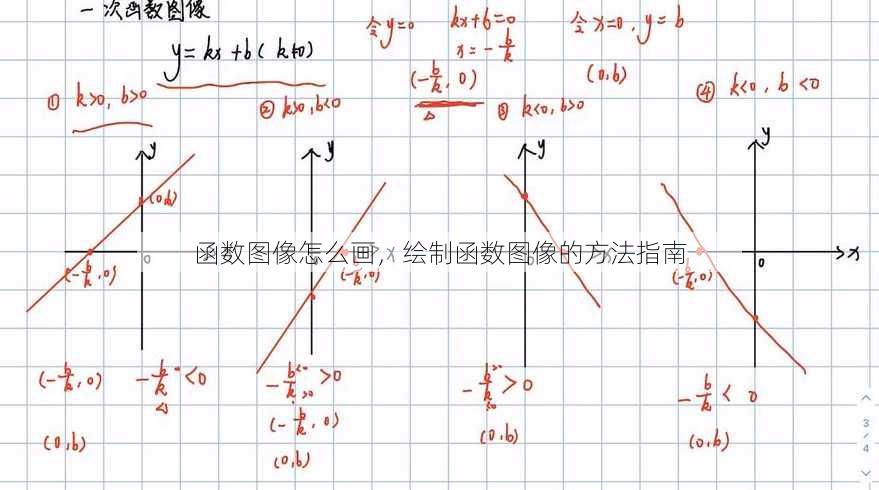 一次函数图像
y=kx+b(k≠0)
令y=0 kx+b=0
x=-b/k
(-b/k,0)
令x=0,y=b
(0,b)
① k>0,b>0
② k>0,b<0
③ k<0,b>0
④ k<0,b<0
y
(0,b)
0
(-b/k,0)
y
x
(-b/k,0)
y
0
x
y
0
x
(-b/k,0)
函数图像怎么画，绘制函数图像的方法指南
(-b/k,0) -b/k<0
(0,b)
-b/k>0
(-b/k,0)
(0,b)
-b/k>0
(0,b)
-b/k<0
(0,b)
3/4